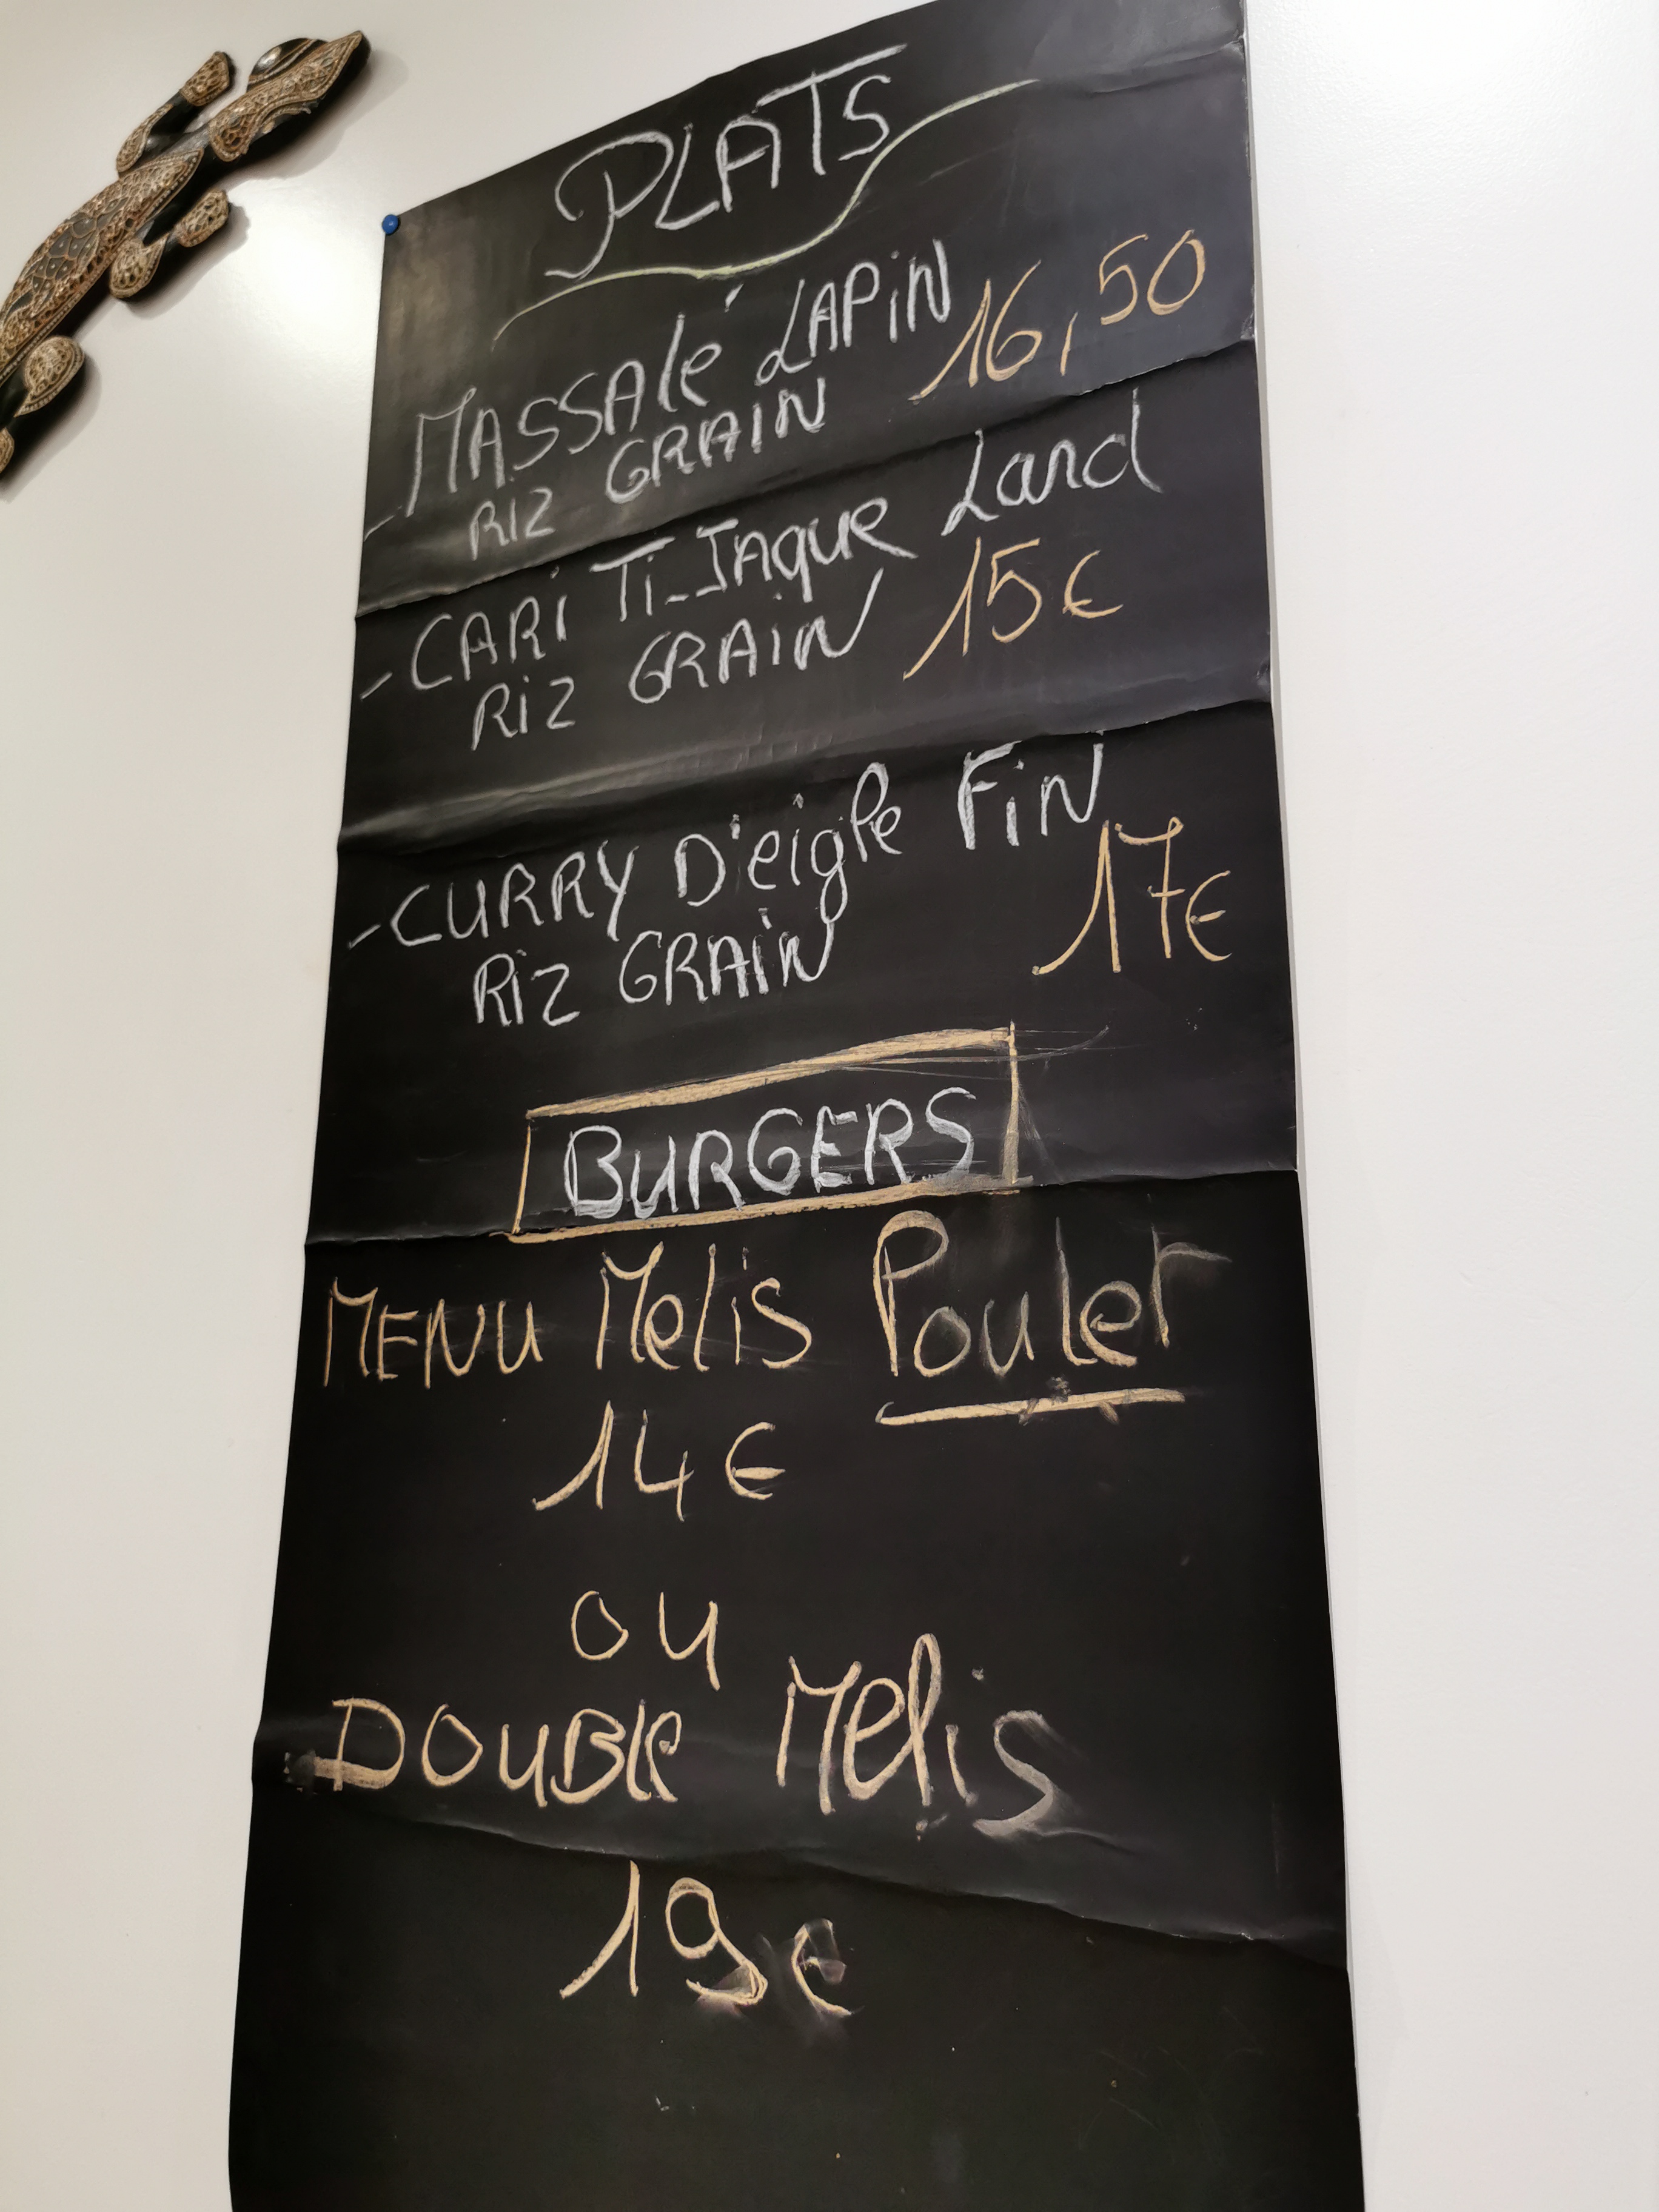 PLATS
- MASSAlé LAPiN 16,50
RIZ GRAIN
- CARi Ti-JAque Lard
RiZ GRAiN 15€
- CURRY D'eigle FiN
RiZ GRAiN 17€
BURGERS
MENU Melis Poulet
14€
ou
DOUBle Melis
19€